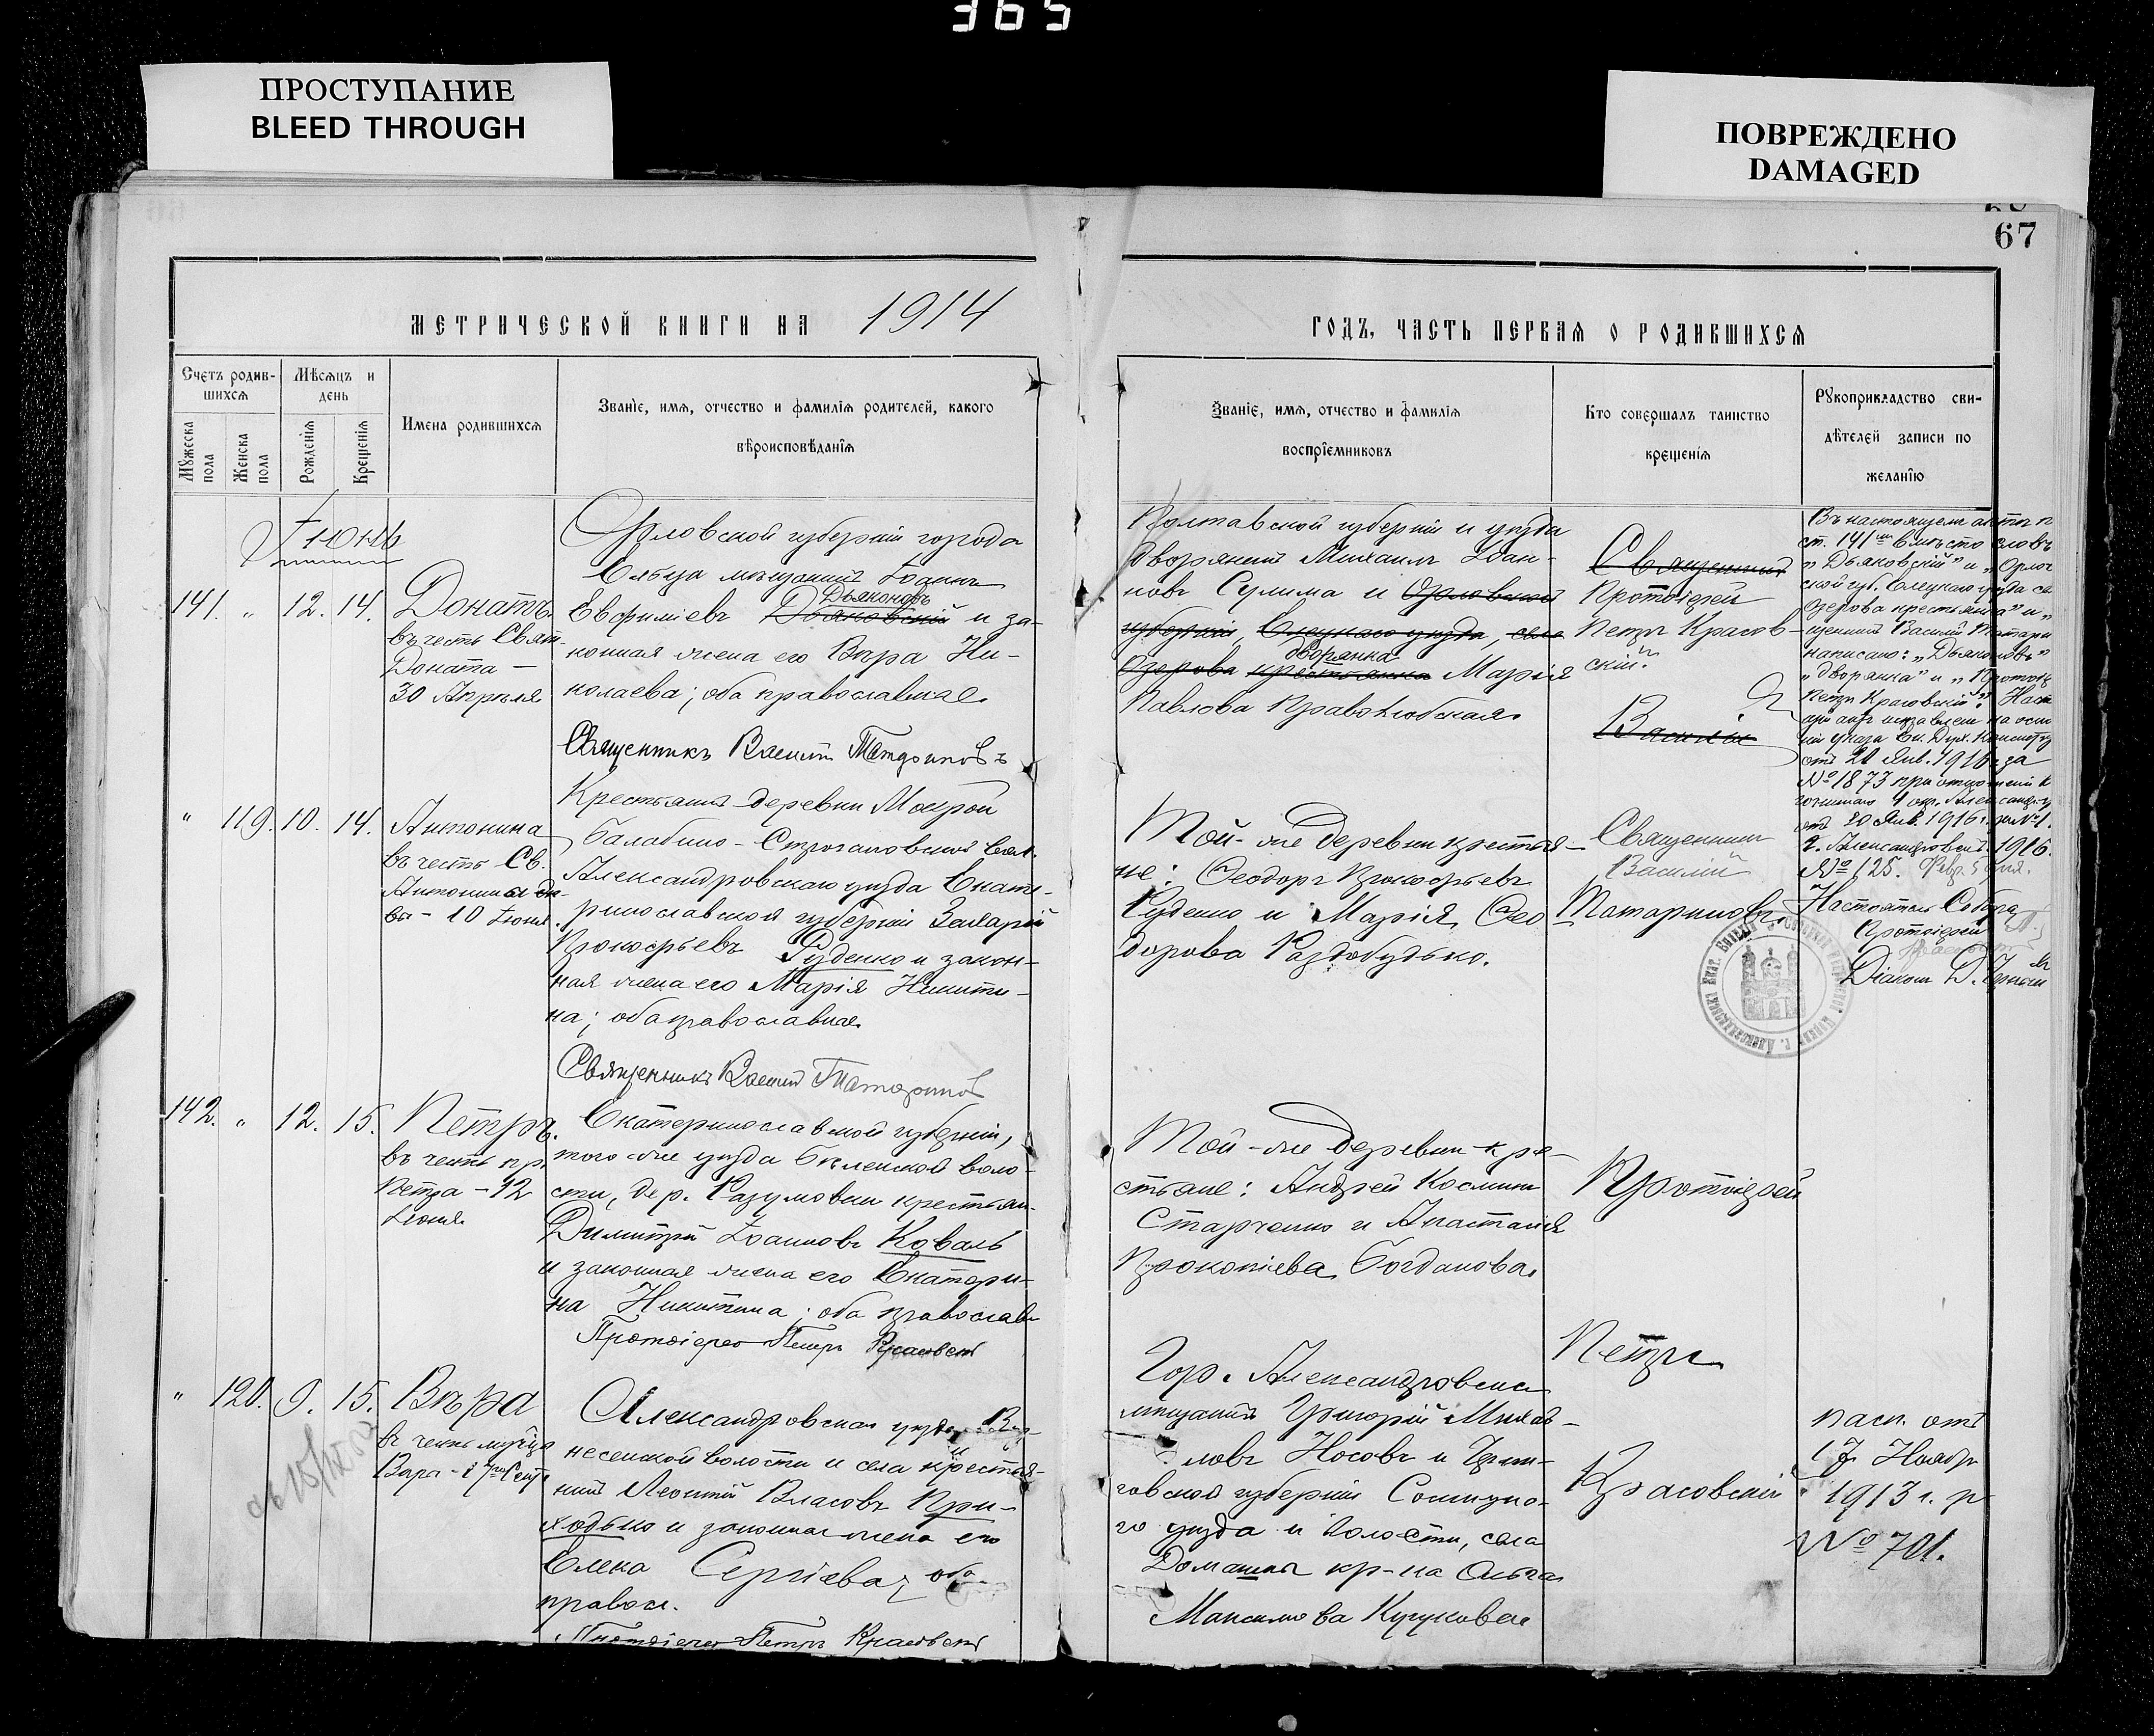 365
ПРОСТУПАНИЕ
BLEED THROUGH
ПОВРЕЖДЕНО
DAMAGED
67
МЕТРИЧЕСКОЙ КНИГИ НА 1914
ГОДЪ, ЧАСТЬ ПЕРВАЯ О РОДИВШИХСЯ
Счетъ родив-
шихся
Мѣсяцъ и
день
Мужеска пола
Женска пола
Рожденія
Крещенія
Имена родившихся
Званіе, имя, отчество и фамилія родителей, какого
вѣроисповѣданія
Званіе, имя, отчество и фамилія
воспріемниковъ
Кто совершалъ таинство
крещенія
Рукоприкладство сви-
дѣтелей записи по
желанію
Іюнь
141. " 12. 14.
Донатъ
въ честь Свят.
Доната —
30 Апрѣля
Орловской губерніи города
Ельца мѣщанинъ Іоаннъ
Дьяконовъ
Евфиміевъ Дьяковскій и за-
конная жена его Вѣра Ни-
колаева; оба православные.
Священникъ Василій Татариновъ
Полтавской губерніи и уѣзда
дворянинъ Михаилъ Іоан-
новъ Сулима и Орловской
губерніи, Елецкаго уѣзда, села
дворянка
Озерова крестьянка Марія
Павлова Праволюбская.
Священникъ
Протоіерей
Петръ Красов-
скій.
Василій
Въ настоящемъ актѣ
ст. 141 вмѣсто словъ
"Дьяковскій" и "Орлов
ской губ. Елецкаго уѣзда се
Озерова крестьянка" и "
щенникъ Василій Татарин
написано: "Дьяконовъ"
"дворянка" и "Протоіер
Петръ Красовскій". Наст
отъ 21 Янв. 1916 г. за
№ 1873 при отношеніи
отъ 20 Янв. 1916 г. за №1.
г. Александровскъ. 1916.
№ 125. Февр. 5 дня.
Настоятель Собора
Протоіерей
Діаконъ
" 119. 10. 14.
Антонина
въ честь Св.
Антонины дѣ-
вы - 10 Іюня.
Крестьянинъ деревни Мокрой
Балабино-Строгановской вол.
Александровскаго уѣзда Екате-
ринославской губерніи Захарій
Прокофьевъ Руденко и закон-
ная жена его Марія Никити-
на; оба православные.
Священникъ Василій Татариновъ
Той-же деревни крестья-
не: Ѳеодоръ Прокофьевъ
Руденко и Марія Ѳео-
дорова Раздобудько.
Священникъ
Василій
Татариновъ.
142. " 12. 15.
Петръ.
въ честь пр.
Петра - 12
Іюня.
Екатеринославской губерніи,
того-же уѣзда Бѣленской воло-
сти, дер. Разумовки крестьян.
Димитрій Іоанновъ Коваль
и законная жена его Екатери-
на Никитина; оба православн.
Протоіерей Петръ Красовскій
Той-же деревни кре-
стьяне: Андрей Косминъ
Старченко и Анастасія
Прокопіева Богданова.
Протоіерей
Петръ
Красовскій.
" 120. 9. 15.
Вѣра
въ честь муч-цы
Вѣры - 17го Сент.
Александровскаго уѣзда Воз-
несенской волости и села крестья-
нинъ Леонтій Власовъ При-
ходько и законная жена его
Елена Сергіева; оба
правосл.
Протоіерей Петръ Красовскій
Гор. Александровска
мѣщанинъ Григорій Михай-
ловъ Носовъ и Черни-
говской губерніи Сосницка-
го уѣзда и волости, села
кр-на Ольга
Максимова
пасп. отъ
17 Ноября
1913 г. за
№ 701.